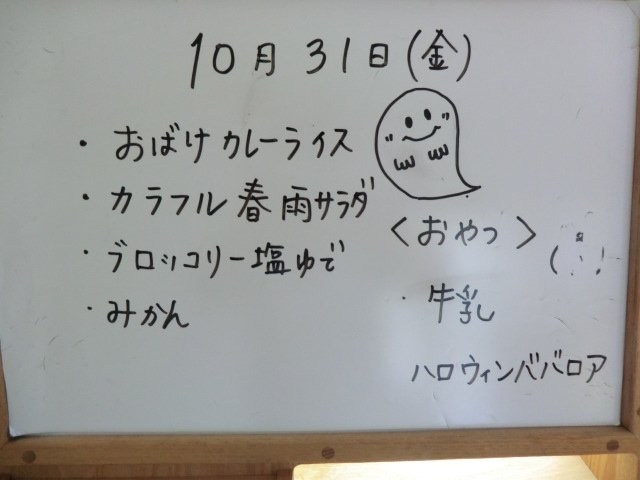 10月31日(金)
・おばけカレーライス
・カラフル春雨サラダ
・ブロッコリー塩ゆで
・みかん
〈おやつ〉
・牛乳
ハロウィンババロア